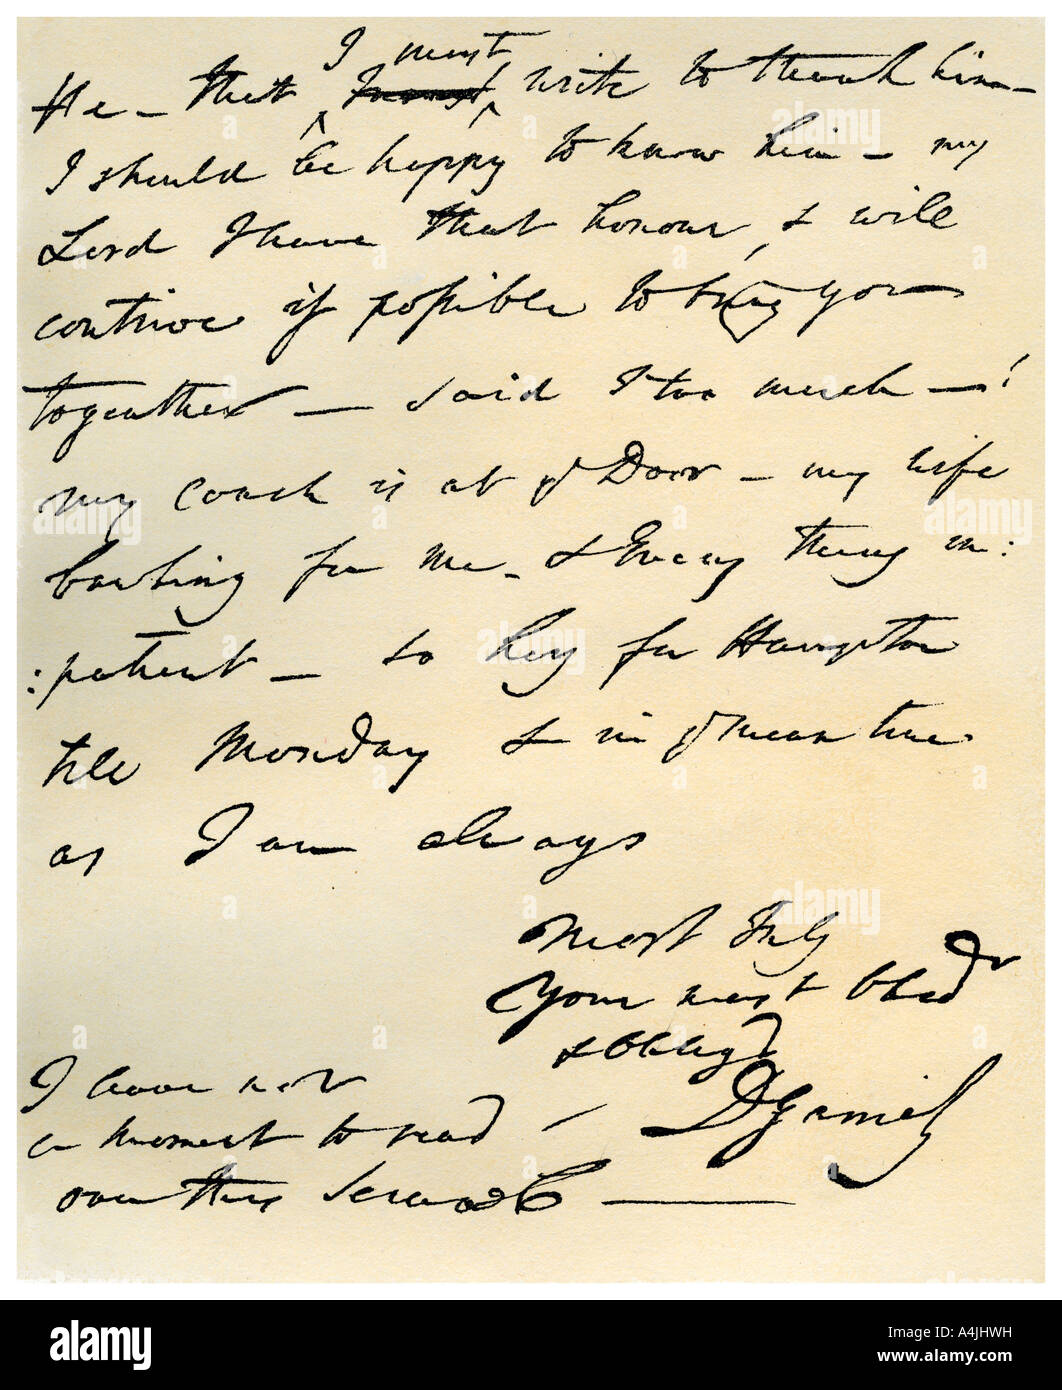 I must
He – that must write to thank him –
I should be happy to know him – my
Lord I have that honour, & will
contrive if possible to bring you
together – said I too much – !
my coach is at ye Door – my wife
bawling for me – & Every thing im:
:patient – so hey for Hampton
till Monday & in ye mean time
as I am always
Most truly
Your most obed
& oblig'd
D Garrick
I have not
a moment to read –
over this Scrawl
alamy
Image ID: A4JHWH
www.alamy.com